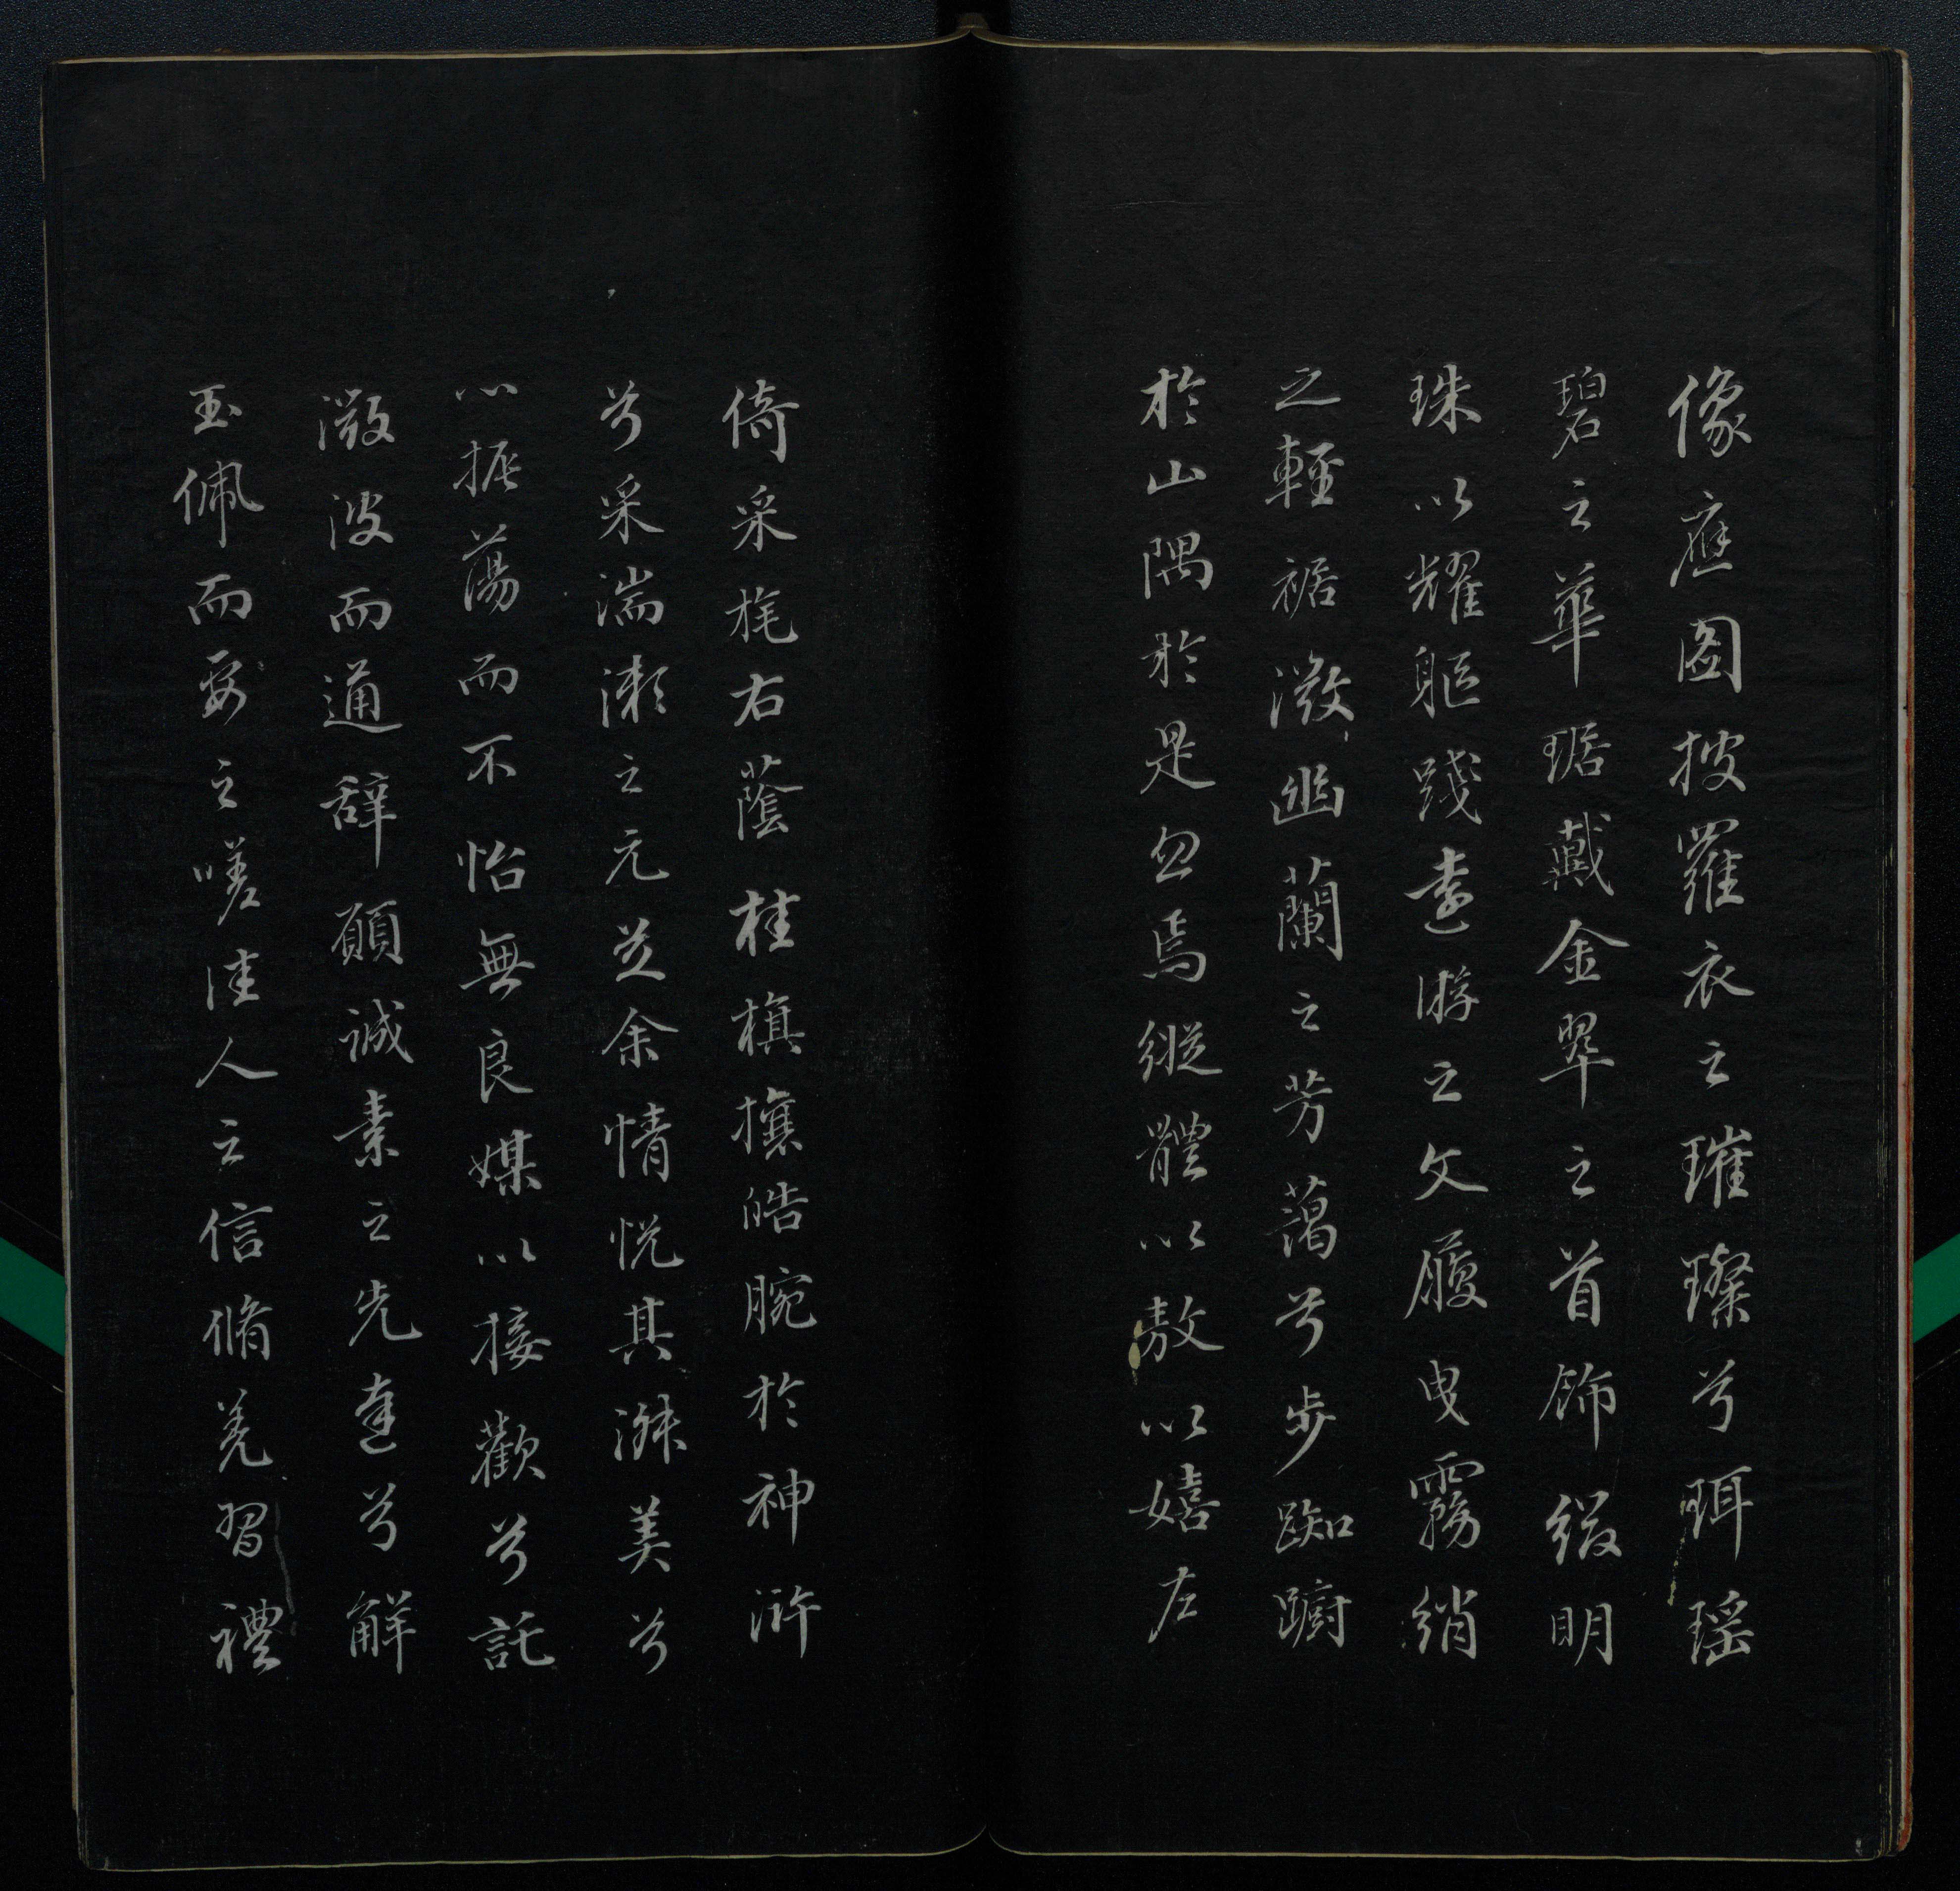 像應圖披羅衣之璀璨兮珥瑶
碧之華琚戴金翠之首飾綴明
珠以耀軀踐遠游之文履曳霧綃
之輕裾微幽蘭之芳藹兮步踟躕
於山隅於是忽焉縱體以敖以嬉左
倚采旄右蔭桂旗攘皓腕於神滸
兮采湍瀨之元芝余情悅其淑美兮
心振蕩而不怡無良媒以接歡兮託
微波而通辭願誠素之先達兮解
玉佩而要之嗟佳人之信脩羌習禮